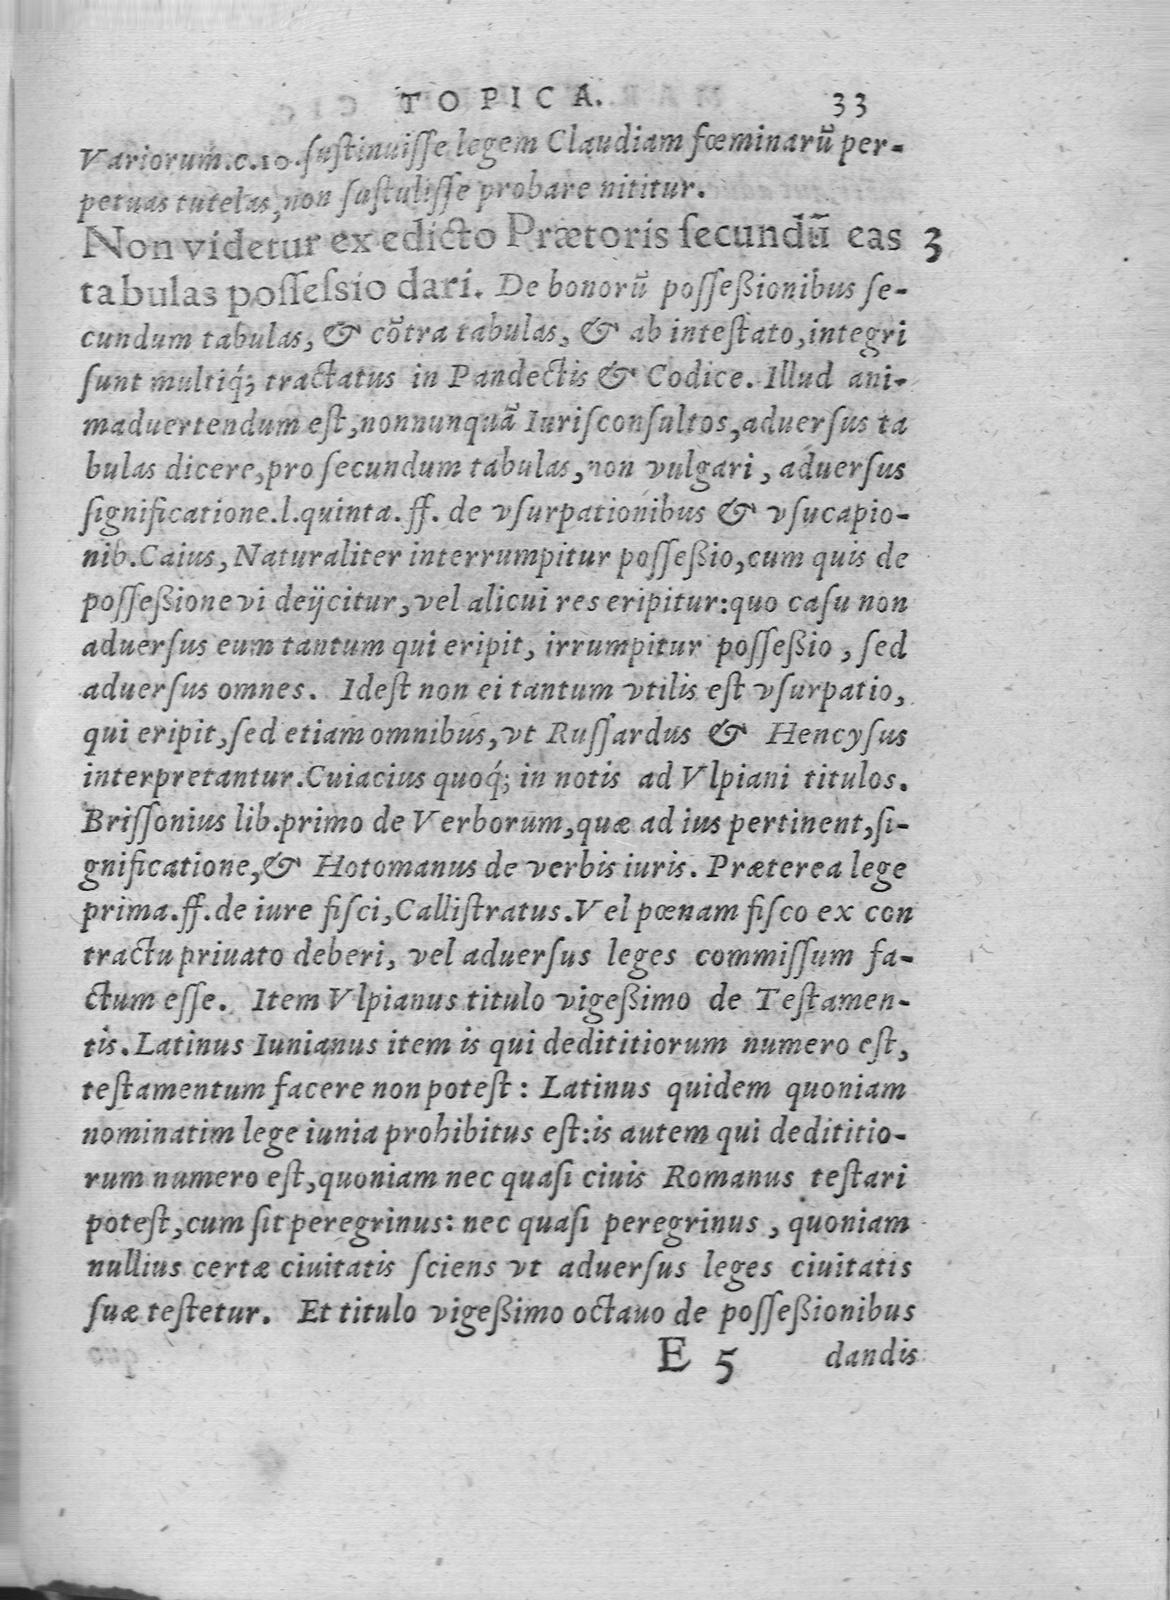 TOPICA. 33
Variorum.c.10.ſuſtinuiſſe legem Claudiam fœminarũ per-
petuas tutelas, non ſuſtuliſſe probare nititur.
Non videtur ex edicto Prætoris ſecundũ eas 3
tabulas poſſeſsio dari. De bonorũ poſſeßionibus ſe-
cundum tabulas, & cõtra tabulas, & ab inteſtato, integri
ſunt multiq́; tractatus in Pandectis & Codice. Illud ani-
maduertendum eſt, nonnunquã Iuriſconſultos, aduerſus ta
bulas dicere, pro ſecundum tabulas, non vulgari, aduerſus
ſignificatione.l.quinta.ff. de vſurpationibus & vſucapio-
nib. Caius, Naturaliter interrumpitur poſſeßio, cum quis de
poſſeßione vi deijcitur, vel alicui res eripitur: quo caſu non
aduerſus eum tantum qui eripit, irrumpitur poſſeßio, ſed
aduerſus omnes. Ideſt non ei tantum vtilis eſt vſurpatio,
qui eripit, ſed etiam omnibus, vt Ruſſardus & Hencyſus
interpretantur. Cuiacius quoq́; in notis ad Vlpiani titulos.
Briſſonius lib. primo de Verborum, quæ ad ius pertinent, ſi-
gnificatione, & Hotomanus de verbis iuris. Præterea lege
prima.ff. de iure fiſci, Calliſtratus. Vel pœnam fiſco ex con
tractu priuato deberi, vel aduerſus leges commiſſum fa-
ctum eſſe. Item Vlpianus titulo vigeßimo de Teſtamen-
tis. Latinus Iunianus item is qui dedititiorum numero eſt,
teſtamentum facere non poteſt: Latinus quidem quoniam
nominatim lege iunia prohibitus eſt: is autem qui dedititio-
rum numero eſt, quoniam nec quaſi ciuis Romanus teſtari
poteſt, cum ſit peregrinus: nec quaſi peregrinus, quoniam
nullius certæ ciuitatis ſciens vt aduerſus leges ciuitatis
ſuæ teſtetur. Et titulo vigeßimo octauo de poſſeßionibus
E 5 dandis